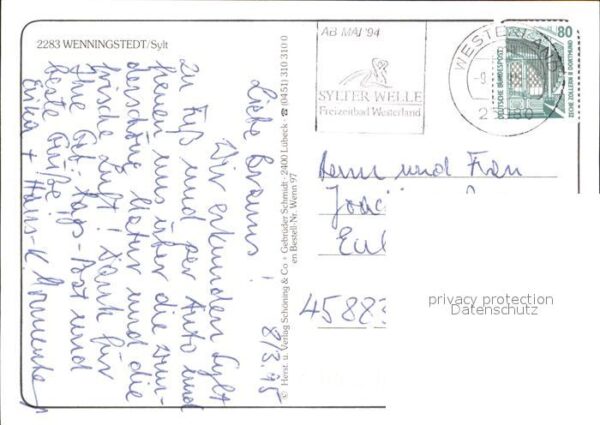 2283 WENNINGSTEDT/Sylt
AB MAI '94
SYLTER WELLE
Freizeitbad Westerland
WESTERLAND
80
DEUTSCHE BUNDESPOST
ZECHE ZOLLERN II DORTMUND
8/3.95
Liebe Brauns!
Wir erkunden Sylt
zu Fuß und per Auto und
freuen uns über die
herrschöne Natur und die
frische Luft! Dank für
Ihre Post und
beste Grüße
Erika + Hans-K.
© Herst. u. Verlag Schöning & Co + Gebrüder Schmidt · 2400 Lübeck · ☎ (0451) 310 310 0
en Bestell-Nr. Wenn 97
Herrn und Frau
45883
privacy protection
Datenschutz